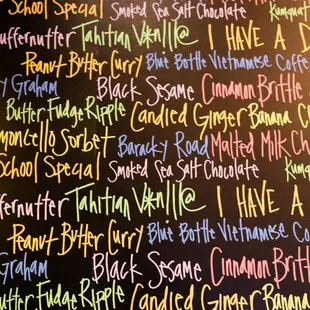 School Special Smoked Sea Salt Chocolate Kumquat
uffernutter Tahitian V*nlll@ I HAVE A D
Peanut Butter Curry Blue Bottle Vietnamese Coffe
y Graham Black Sesame Cinnamon Brittle
Butter Fudge Ripple Candied Ginger Banana C
moncello Sorbet Baracky Road Malted Milk Ch
School Special Smoked Sea Salt Chocolate Kumq
ffernutter Tahitian V*nlll@ I HAVE A
Peanut Butter Curry Blue Bottle Vietnamese Co
Graham Black Sesame Cinnamon Britt
utter Fudge Ripple Candied Ginger Banana